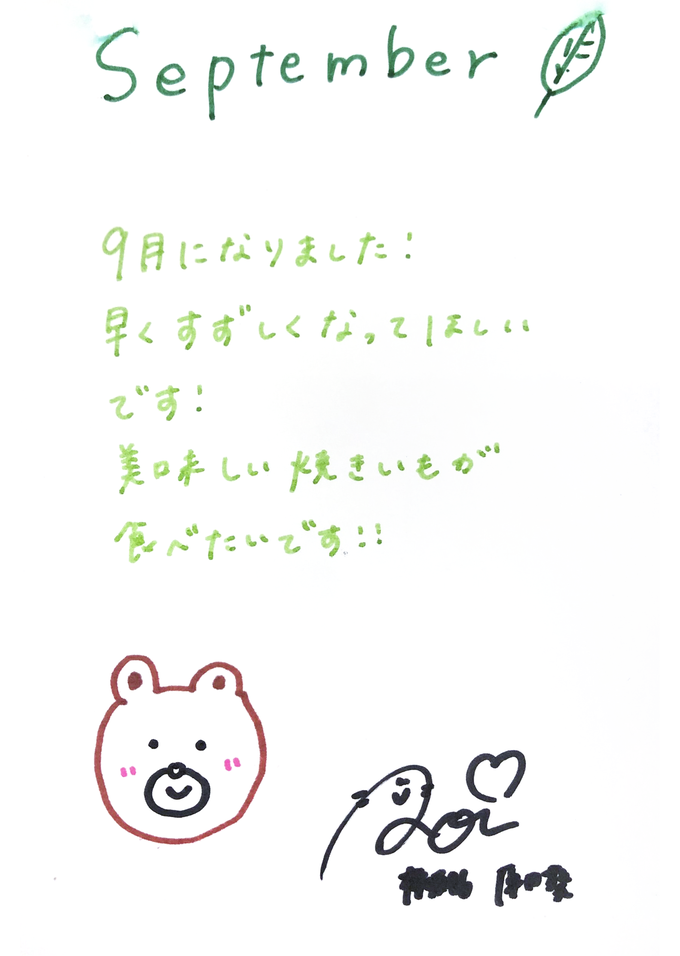 September
9月になりました!
早くすずしくなってほしい
です!
美味しい焼きいもが
食べたいです!!